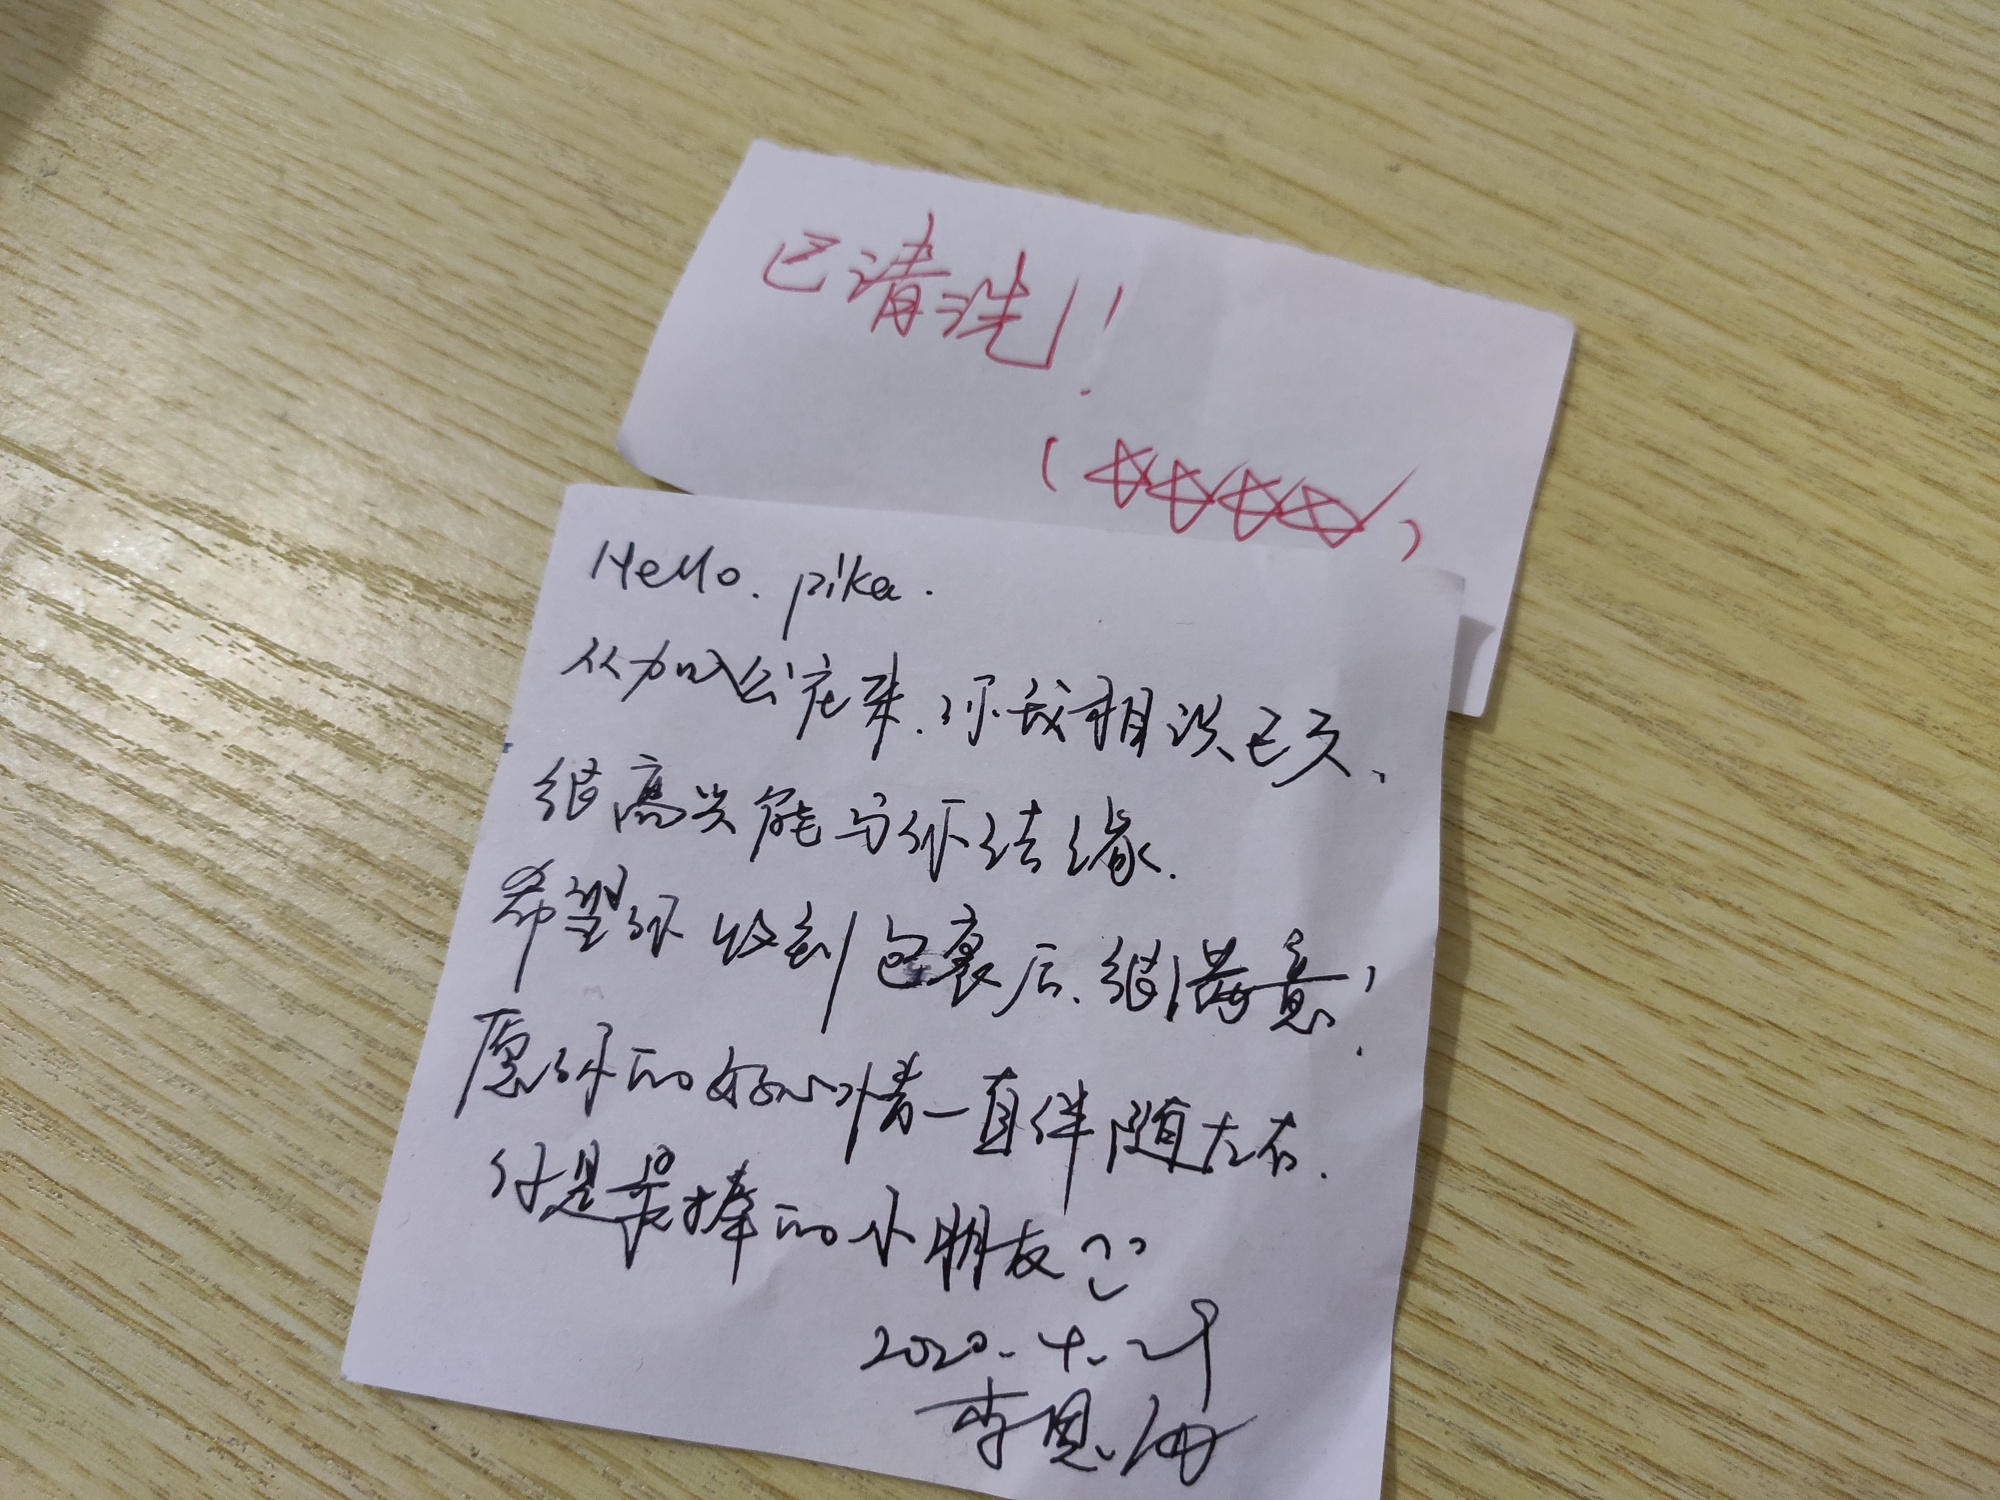 已清洗！
（☆☆☆☆）
Hello. pika.
从加入公庄来，你我相识已久、
很高兴能与你结缘.
希望你收到包裹后、很满意！
愿你的好心情一直伴随左右.
你是最棒的小朋友
2020.4.29
李恩